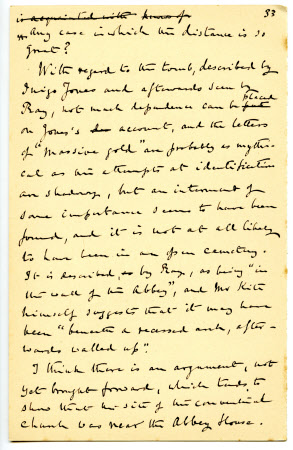 33
is acquainted with knows of
any case in which the distance is so
great?
With regard to the tomb, described by
Inigo Jones and afterwards seen by
Ray, not much dependence can be put placed
on Jones's account, and the letters
of "massive gold" are probably as mythi-
cal as his attempts at identification
are shadowy, but an interment of
some importance seems to have been
found, and it is not at all likely
to have been in an open cemetery.
It is described, by Ray, as being "in
the wall of the Abbey", and Mr Kite
himself suggests that it may have
been "beneath a recessed arch, after-
wards walled up".
I think there is an argument, not
yet brought forward, which tends to
show that the site of the conventual
Church was near the Abbey House.